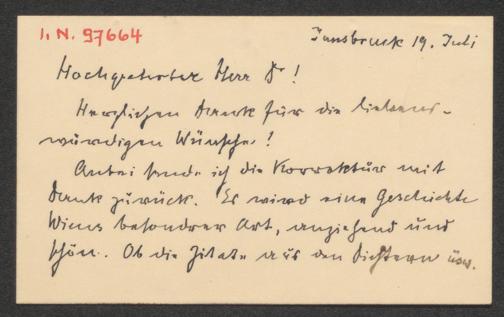 I. N. 97664
Innsbruck 19. Juli
Hochgeehrter Herr Dr!
Herzlichen Dank für die liebens-
würdigen Wünsche!
Anbei sende ich die Korrektur mit
Dank zurück. Es wird eine Geschichte
Wiens besondrer Art, anziehend und
schön. Ob die Zitate aus den Dichtern usw.